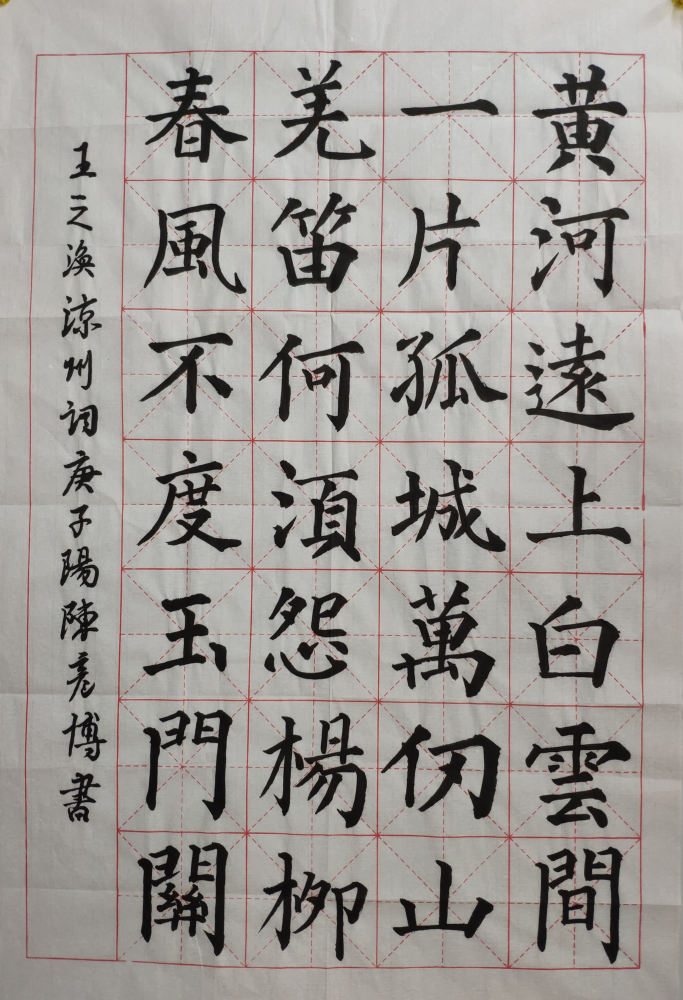 黄河遠上白雲間
一片孤城萬仞山
羌笛何須怨楊柳
春風不度玉門關
王之渙涼州詞庚子陽陳彦博書